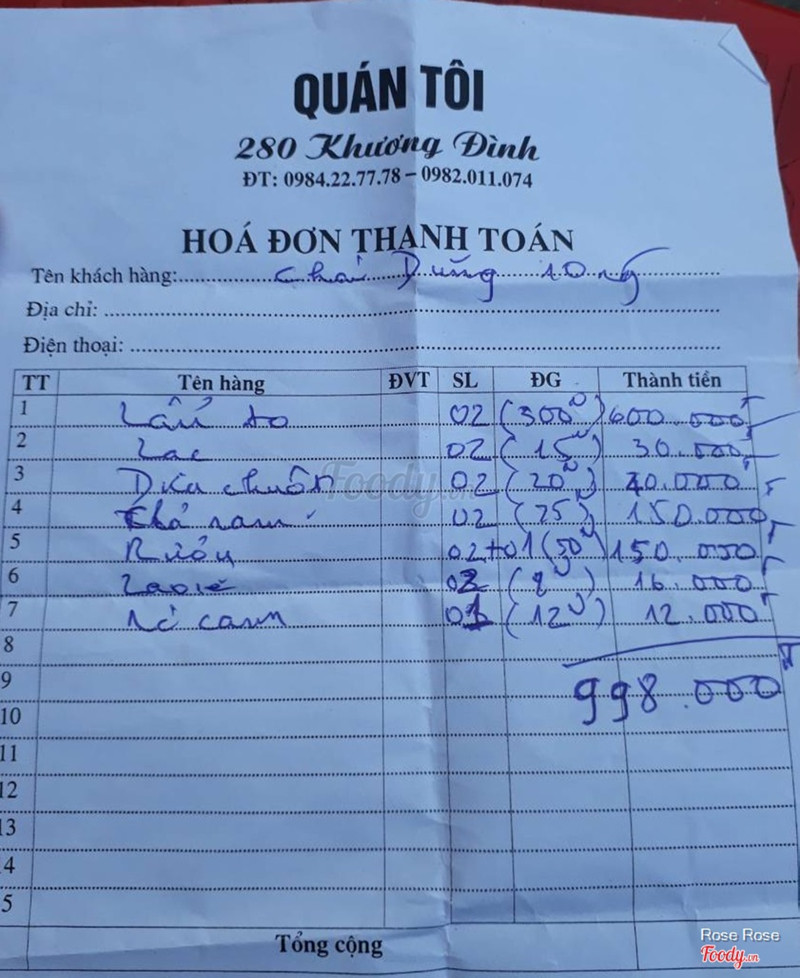 QUÁN TÔI
280 Khương Đình
ĐT: 0984.22.77.78 – 0982.011.074
HOÁ ĐƠN THANH TOÁN
Tên khách hàng:
Địa chỉ:
Điện thoại:
TT Tên hàng ĐVT SL ĐG Thành tiền
1 Lẩu to 02 (300) 600.000
2 Lạc 02 (15) 30.000
3 Dưa chuột 02 (20) 40.000
4 02 (75) 150.000
5 Rượu 02+01 (50) 150.000
6 02 (8) 16.000
7 01 (12) 12.000
8
9 998.000
10
11
12
13
4
5
Tổng cộng
Foody.vn
Rose Rose
Foody.vn